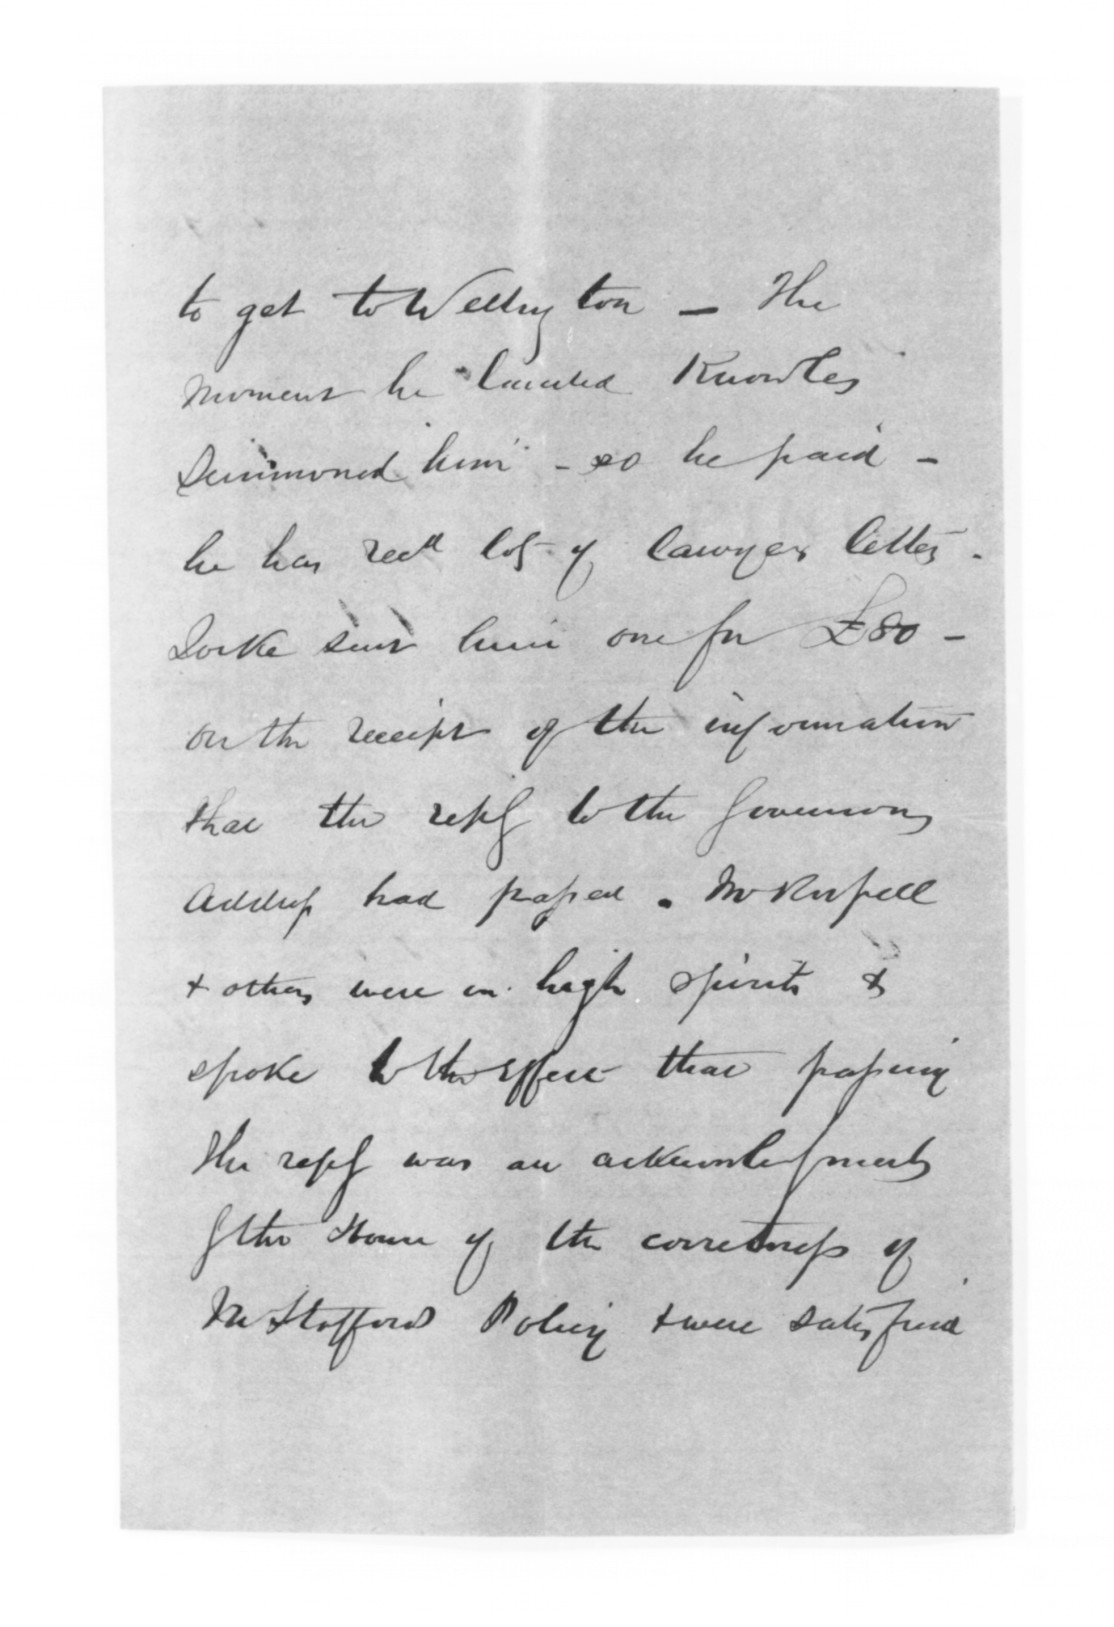 to get to Wellington — The
moment he landed Knowles
Summoned him - so he paid -
he has recd lots of lawyers letters.
Locke sent him one for £80 -
on the receipt of the information
that the reply to the Governors
Address had passed. Mr Russell
& others were in high spirits &
spoke to the effect that passing
the reply was an acknowledgment
of the House of the correctness of
Mr Staffords Policy & were satisfied